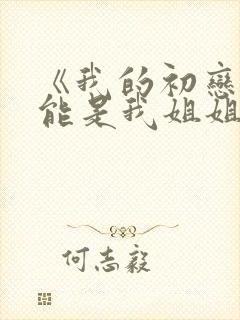 《我的初戀
能是我姐姐
何志毅